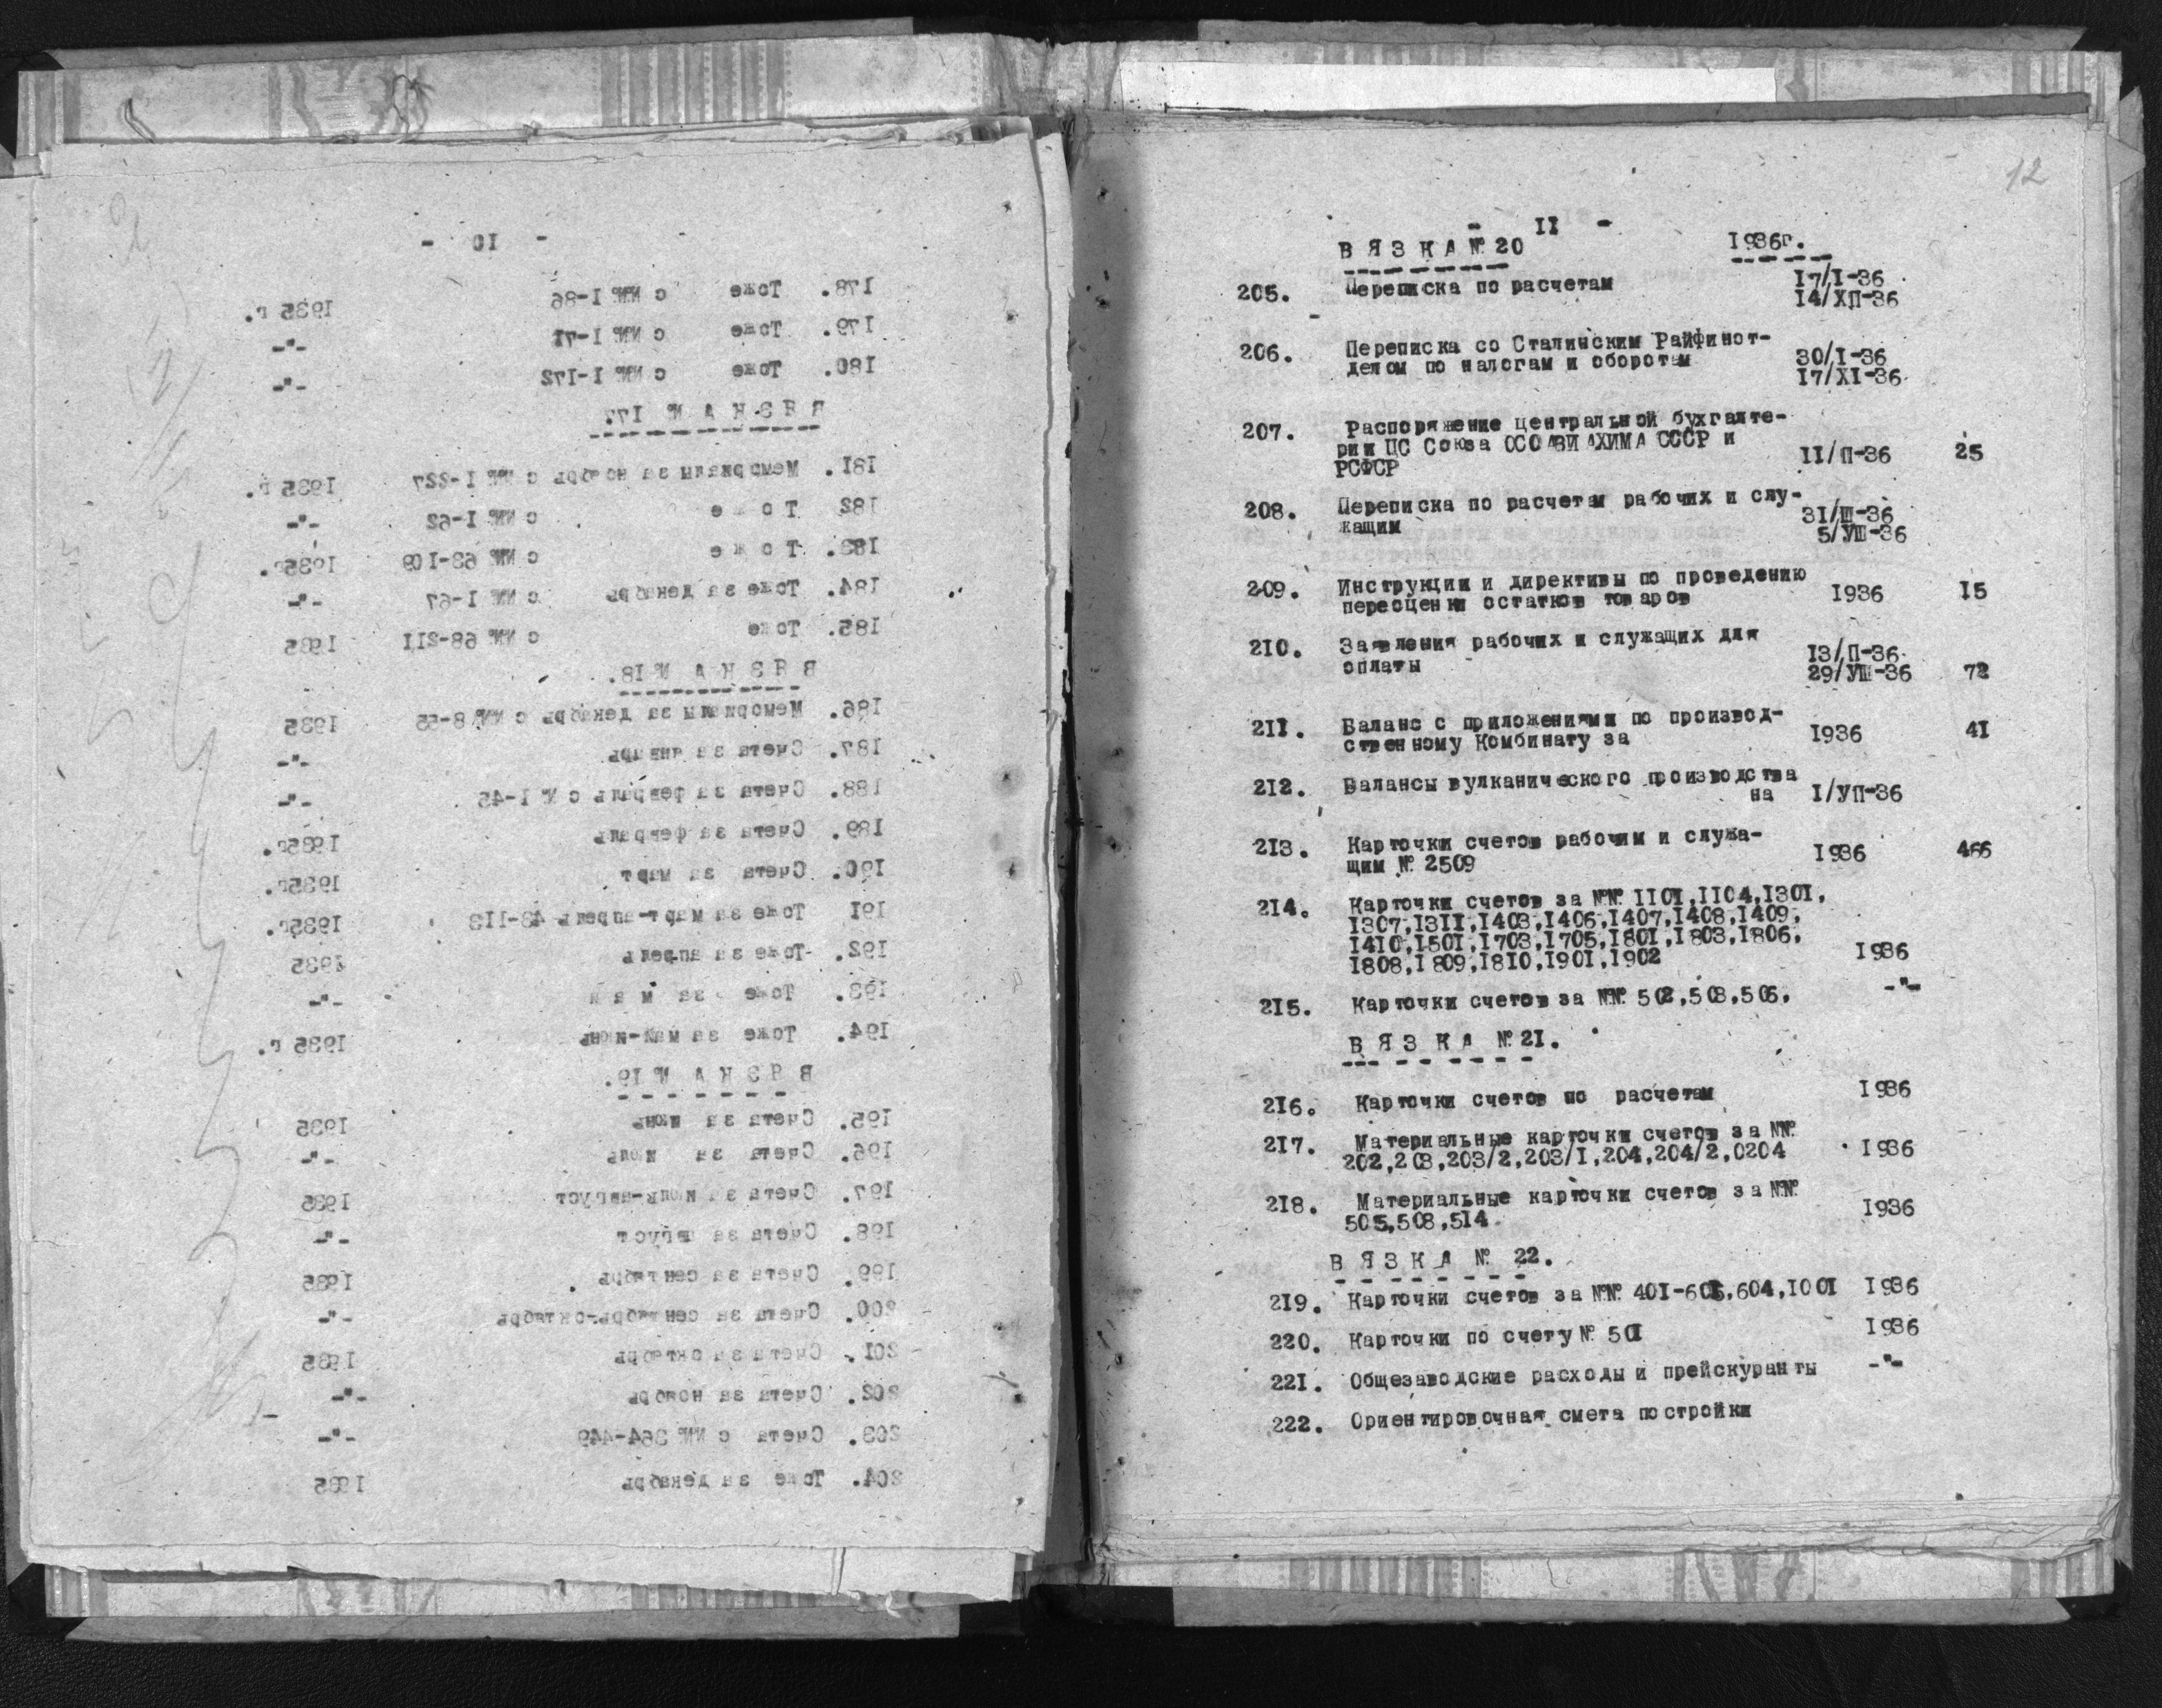 - 10 -
178. Тоже с №№ I-86 1935 г.
179. Тоже с №№ I-71 -"-
180. Тоже с №№ I-172 -"-
В Я З К А № 17.
181. Мемориалы за ноябрь с №№ I-227 1935 г.
182 Т о ж е с №№ I-62 -"-
183. Т о ж е с №№ 63-109 1935г.
184. Тоже за декабрь с №№ I-67 -"-
185. Тоже с №№ 68-211 1935
В Я З К А № 18.
186. Мемориалы за декабрь с №№ 8-55 1935
187. Счета за январь -"-
188. Счета за февраль с № I-45 -"-
189. Счета за февраль 1935г.
190. Счета за март 1935г.
191 Тоже за март-апрель 43-113 1935г.
192. Тоже за апрель 1935
193. Тоже за м а й -"-
194. Тоже за май-июнь 1935 г.
В Я З К А № 19.
195. Счета за июнь 1935
196. Счета за июль -"-
197. Счета за июль-август 1935
198. Счета за август -"-
199. Счета за сентябрь 1935
200. Счета за сентябрь-октябрь -"-
201. Счета за октябрь 1935
202. Счета за ноябрь -"-
203. Счета с №№ 364-449 -"-
204. Тоже за декабрь 1935
12
- II -
В Я З К А № 20 1936г.
205. Переписка по расчетам 17/I-36
14/ХП-36
206. Переписка со Сталинским Райфинот-
делом по налогам и оборотам 30/I-36
17/XI-36
207. Распоряжение центральной бухгалте-
рии ЦС Союза ОСОАВИАХИМА СССР и
РСФСР II/П-36 25
208. Переписка по расчетам рабочих и слу-
жащим 31/Ш-36
5/УШ-36
209. Инструкции и директивы по проведению
переоценки остатков товаров 1936 15
210. Заявления рабочих и служащих для
оплаты 13/П-36
29/УШ-36 72
211. Баланс с приложениями по производ-
ственному Комбинату за 1936 41
212. Балансы вулканического производства
на I/УП-36
213. Карточки счетов рабочим и служа-
щим № 2509 1936 466
214. Карточки счетов за №№ 1101,1104,1301,
1307,1311,1403,1406,1407,1408,1409,
1410,1501,1703,1705,1801,1803,1806,
1808,1809,1810,1901,1902 1936
215. Карточки счетов за №№ 502,503,506. -"-
В Я З К А № 21.
216. Карточки счетов по расчетам 1936
217. Материальные карточки счетов за №№
202,203,203/2,203/I,204,204/2,0204 1936
218. Материальные карточки счетов за №№
505,508,514 1936
В Я З К А № 22.
219. Карточки счетов за №№ 401-601,604,1001 1936
220. Карточки по счету № 501 1936
221. Общезаводские расходы и прейскуранты -"-
222. Ориентировочная смета постройки